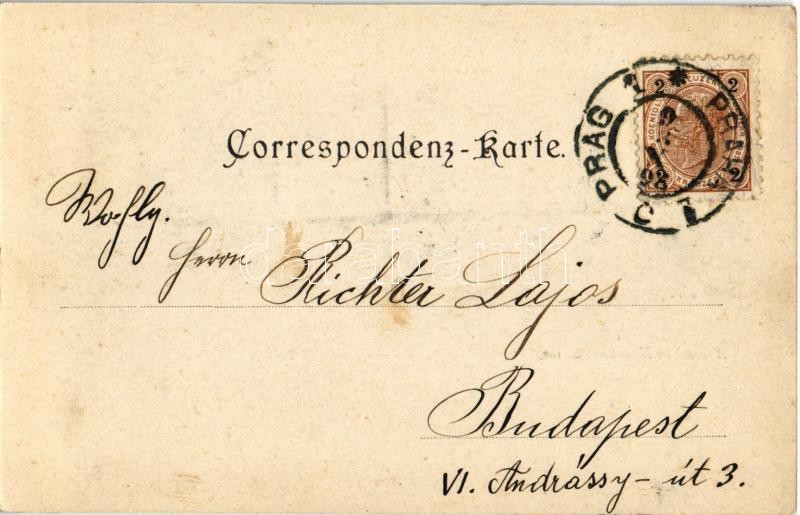 Correspondenz-Karte.
PRAG 1
98
2 2
2
Wohlg.
Herrn
Richter Lajos
Budapest
VI. Andrássy-út 3.
darabanth